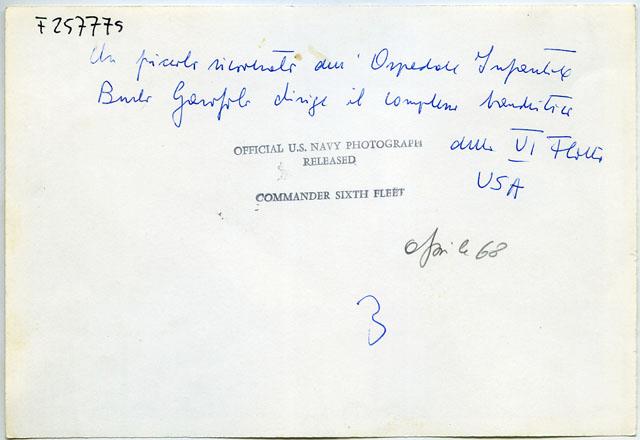 F257779
Un piccolo ricoverato dell'Ospedale Infantile
Burlo Garofolo dirige il complesso bandistico
della VI Flotta
USA
OFFICIAL U.S. NAVY PHOTOGRAPH
RELEASED
COMMANDER SIXTH FLEET
aprile 68